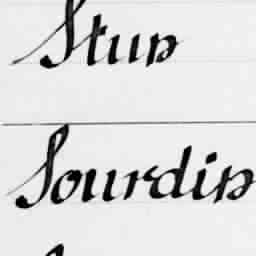 Stun
Sourdin